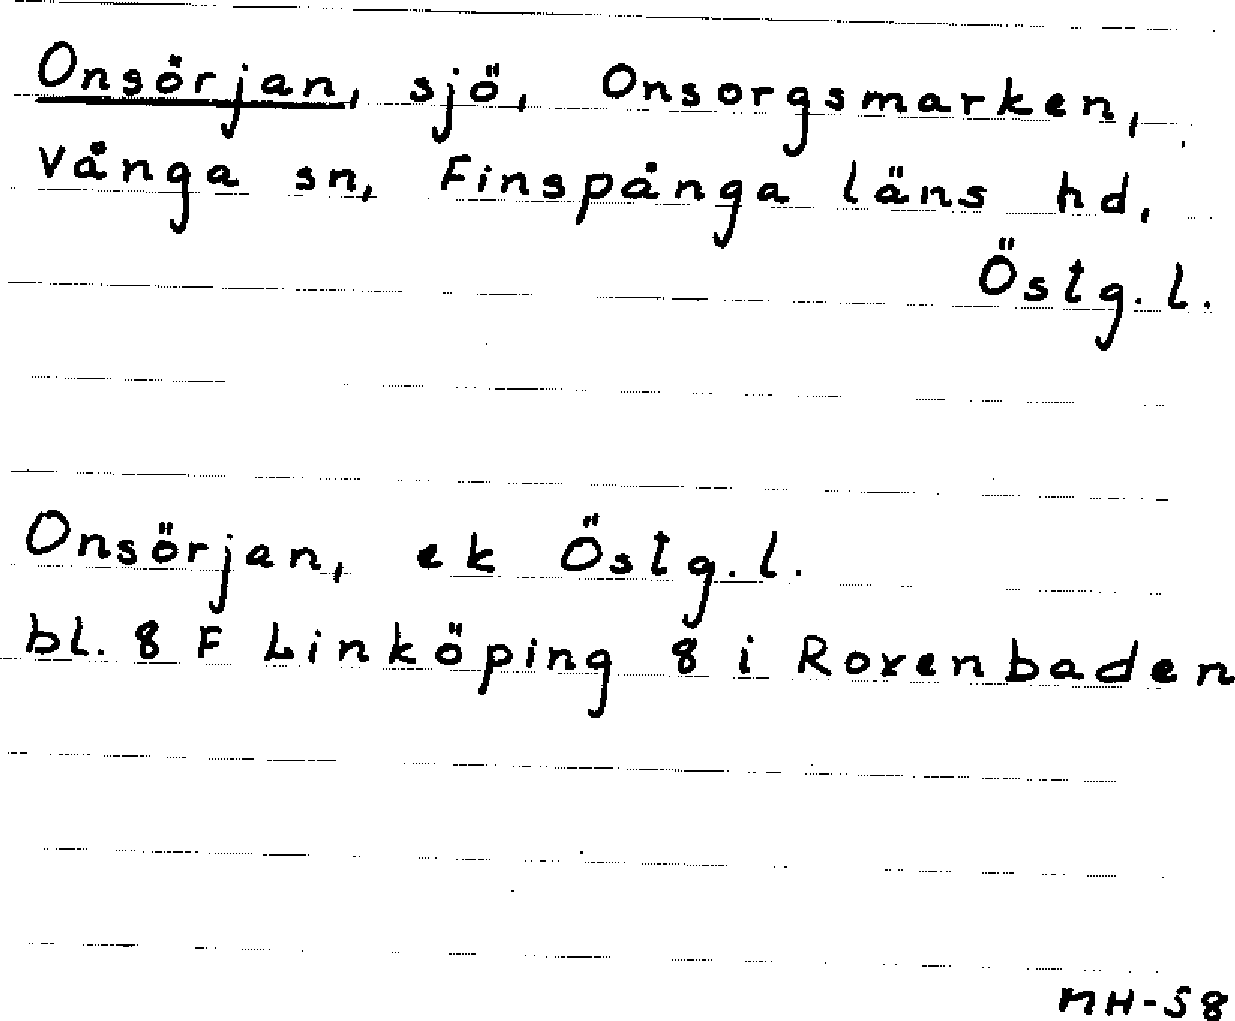 Onsörjan, sjö, Onsorgsmarken,
Vånga sn, Finspånga läns hd,
Östg.l.
Onsörjan, ek Östg.l.
bl. 8 F Linköping 8 i Roxenbaden
MH-58